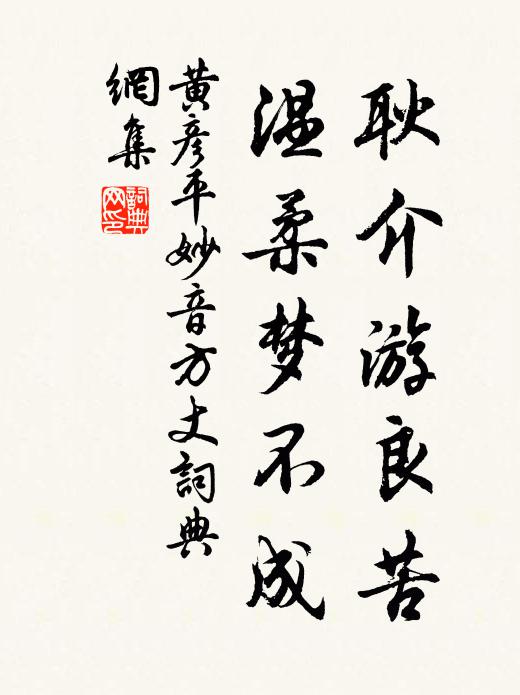 耿介游良苦
温柔梦不成
黄彦平妙音方丈詞典
網集
詞典网印